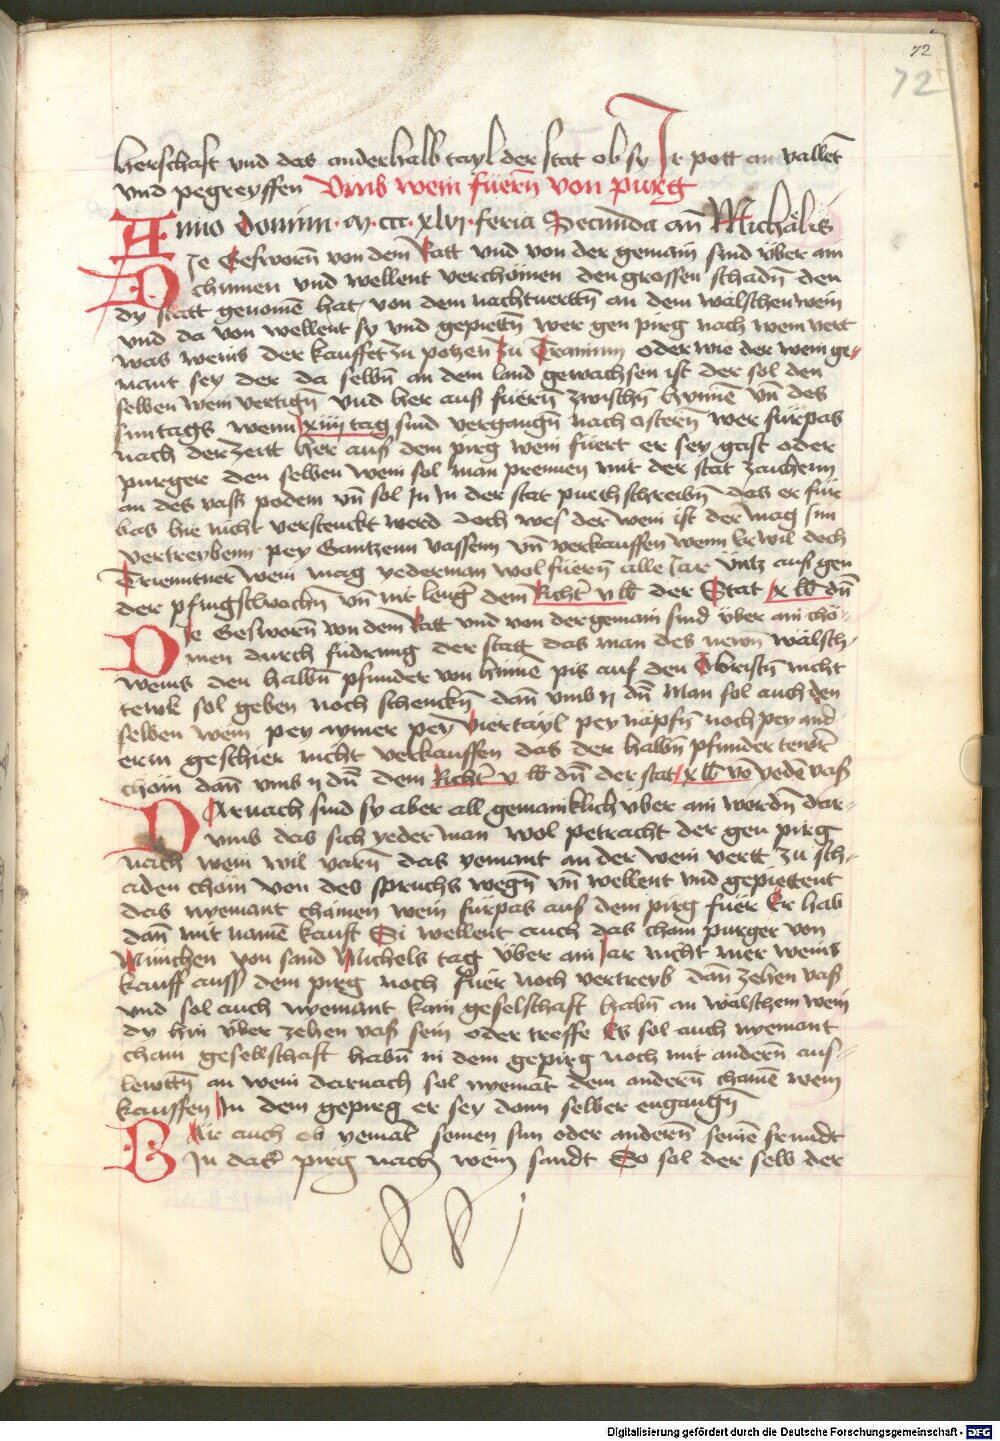 72
72
herschaft vnd das anderhalb tayl der stat ob sy Ir pott an vallet̄
vnd pegreyffen Vmb wein fūern̄ von purg
Anno domini · m · ccc · xlvi · feria Secūnda an̄ Michaelis
DIe Gesworen̄ von dem Ratt vnd von der gemain sind v̈ber ain
chomen vnd wellent verchömen den grossen schadn̄ den
dy statt genomē hat von dem nachtuerttn̄ an dem wälschen wein
vnd da von wellent sy vnd gepiettn̄ wer gen pirg nach wein vert
was weins der kauffet zu potzen zu Traminn oder wie der wein ge-
nant sey der da selbn̄ an dem land gewachsen ist der sol den
selben wein vertign̄ vnd her auß fueren̄ zwischn̄ hynnē vn̄ des
suntags wenn xiiij tag sind vergangn̄ nach osteren̄ wer fürpas
nach der zeitt her auß dem pirg wein fuert er sey gast oder
purger den selben wein sol man prennen mit der stat zaichenn
an des vass podem vn̄ sol in in der stat puech schreibn̄ das er für
bas hie nicht verstenckt werd doch wes der wein ist der mag sin
vertreybenn pey Gantzenn vassenn vn̄ verkauffen wenn Er wil doch
Trienntner wein mag yederman wol fueren̄ alle Jar v̈ntz auf gen
der pfingstwochn̄ vn̄ nit lenḡ dem Richt̄ v lb der Stat x lb dn̄
DIe Gesworen̄ von dem Ratt vnd von der gemain sind v̈ber ain chö-
men durch fudrung der statt das man des newn̄ wälsch-
weins den halbn̄ pfunder von hinnē pis auf den Obristn̄ nicht
tewr̄ sol geben noch schenckn̄ dan̄ vmb ij dn̄ Man sol auch den
selben wein pey aymer pey viertayl pey näpfn̄ noch pey and
erm geschier nicht verkauffen das der halbn̄ pfunder tewr̄
chöm dan̄ vmb ij dn̄ dem Richt̄ v lb dn̄ der stat x lb vō yedē vaß
DArnach sind sy aber all gemainklich v̈ber ain wordn̄ dar-
vmb das sich yeder man wol petracht der gen pirg
nach wein wil varn̄ das yemant an der wein vertt zu sch-
aden chöm von des spruchs wegn̄ vn̄ wellent vnd gepiettent
das nyemant chainen wein fürpas auß dem pirg fuer Er hab
dan̄ mit namē kauft Si wellent auch das chain purger von
München von sand Michels tag v̈ber ain Jar nicht mer weins
kauff auß dem pirg noch fuer noch vertreyb dan̄ zehen vaß
vnd sol auch nyemant kain geselschaft habn̄ an wälschem wein
dy hin v̈ber zehen vaß sein oder treffe Es sol auch nyemant
chain gesellschaft habn̄ in dem gepirg noch mit anderen̄ auß-
lewttn̄ an wein darnach sol nyemāt dem anderen̄ chainē wein
kauffen In dem gepirg er sey dann selber engangn̄
Bär auch ob yemāt seinen sun oder anderen̄ seinē freundt
In daz pirg nach wein sandt So sol der selb der
Digitalisierung gefördert durch die Deutsche Forschungsgemeinschaft - DFG